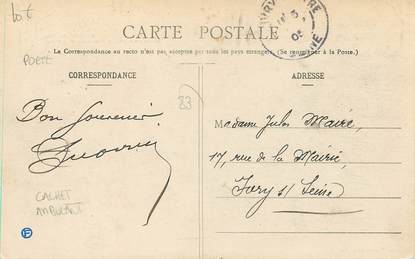 Lot
CARTE POSTALE
La Correspondance au recto n'est pas acceptée par tous les pays étrangers. (Se renseigner à la Poste.)
POETE
CORRESPONDANCE
ADRESSE
Bon Souvenir
Madame Jules Maire,
17, rue de la Mairie,
Ivry s/ Seine
CACHET
AMBULANT